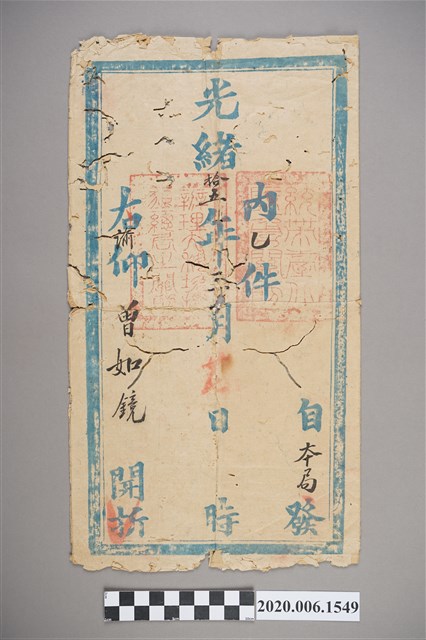 內乙件
自本局發
光緒拾五年十二月 日 時
右諭仰曾如鏡開拆
2020.006.1549